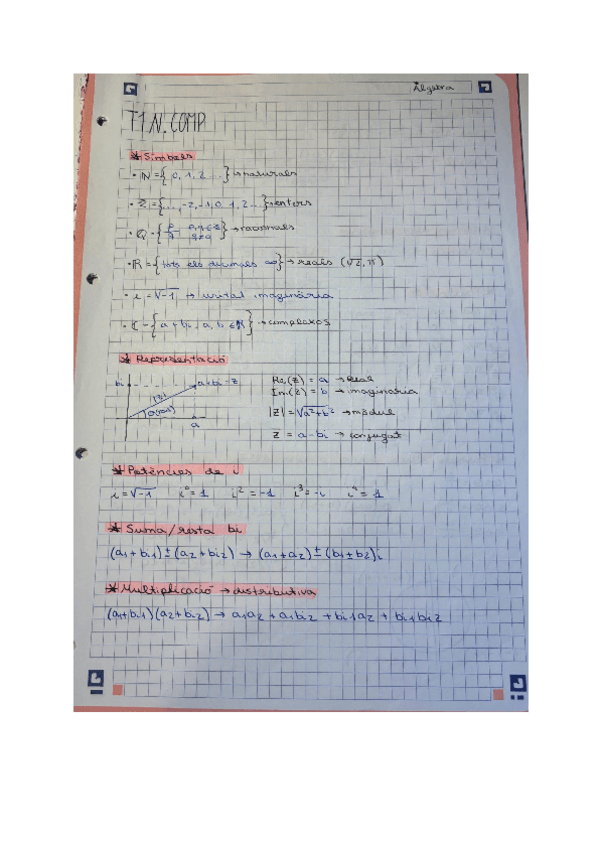 Àlgebra
T1 N. COMP
* Símbols
• ℕ = { 0, 1, 2 ... } → naturals
• ℤ = { ..., -2, -1, 0, 1, 2 ... } enters
• ℚ = { → racionals
• ℝ = { tots els decimals ∞ } → reals (√2, π)
• i = √-1 → unitat imaginària
• ℂ = { a + bi, a, b ∈ ℝ } → complexos
* Representació
bi a + bi = z
|z|
a
Re(z) = a → Real
Im(z) = b → imaginaria
|z| = √a²+b² → mòdul
z = a - bi → conjugat
* Potències de i
i = √-1 i⁰ = 1 i² = -1 i³ = -i i⁴ = 1
* Suma/resta bi
(a1 + bi1) ± (a2 + bi2) → (a1 + a2) ± (b1 ± b2)i
* Multiplicació → distributiva
(a1 + bi1)(a2 + bi2) → a1a2 + a1bi2 + bi1a2 + bi1bi2